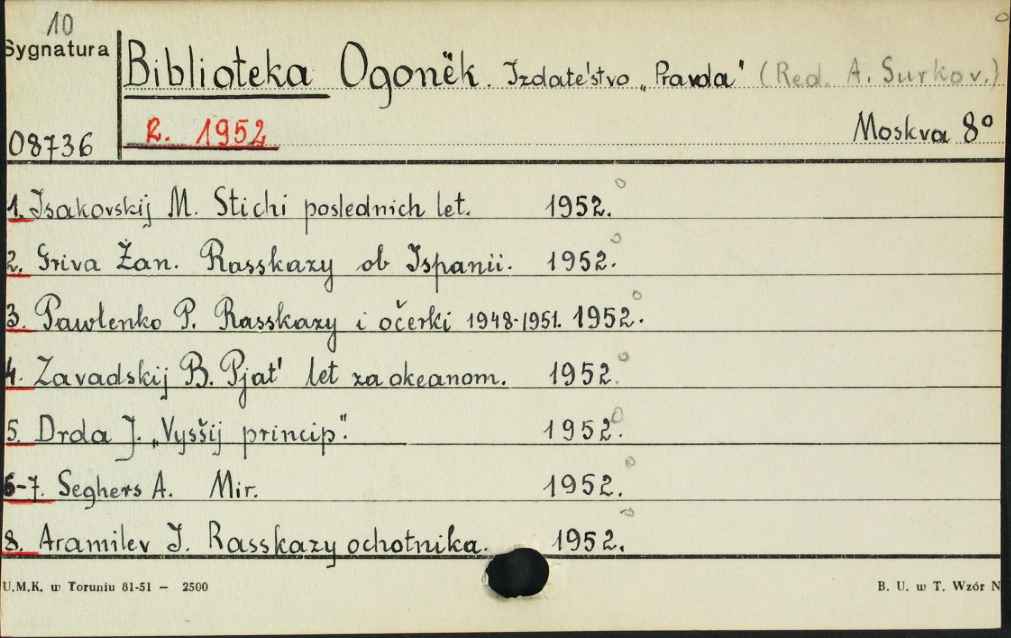 10
Sygnatura
Biblioteka Ogonëk. Izdate'stvo „Pravda" (Red. A. Surkov.)
08736
R. 1952
Moskva 8°
1. Isakovskij M. Stichi poslednich let. 1952.
2. Griva Žan. Rasskazy ob Ispanii. 1952.
3. Pawlenko P. Rasskazy i očerki 1948-1951. 1952.
4. Zavadskij B. Pjat' let za okeanom. 1952.
5. Drda J. „Vysšij princip". 1952.
6-7. Seghers A. Mir. 1952.
8. Aramilev I. Rasskazy ochotnika. 1952.
U.M.K. w Toruniu 81-51 — 2500
B. U. w T. Wzór N